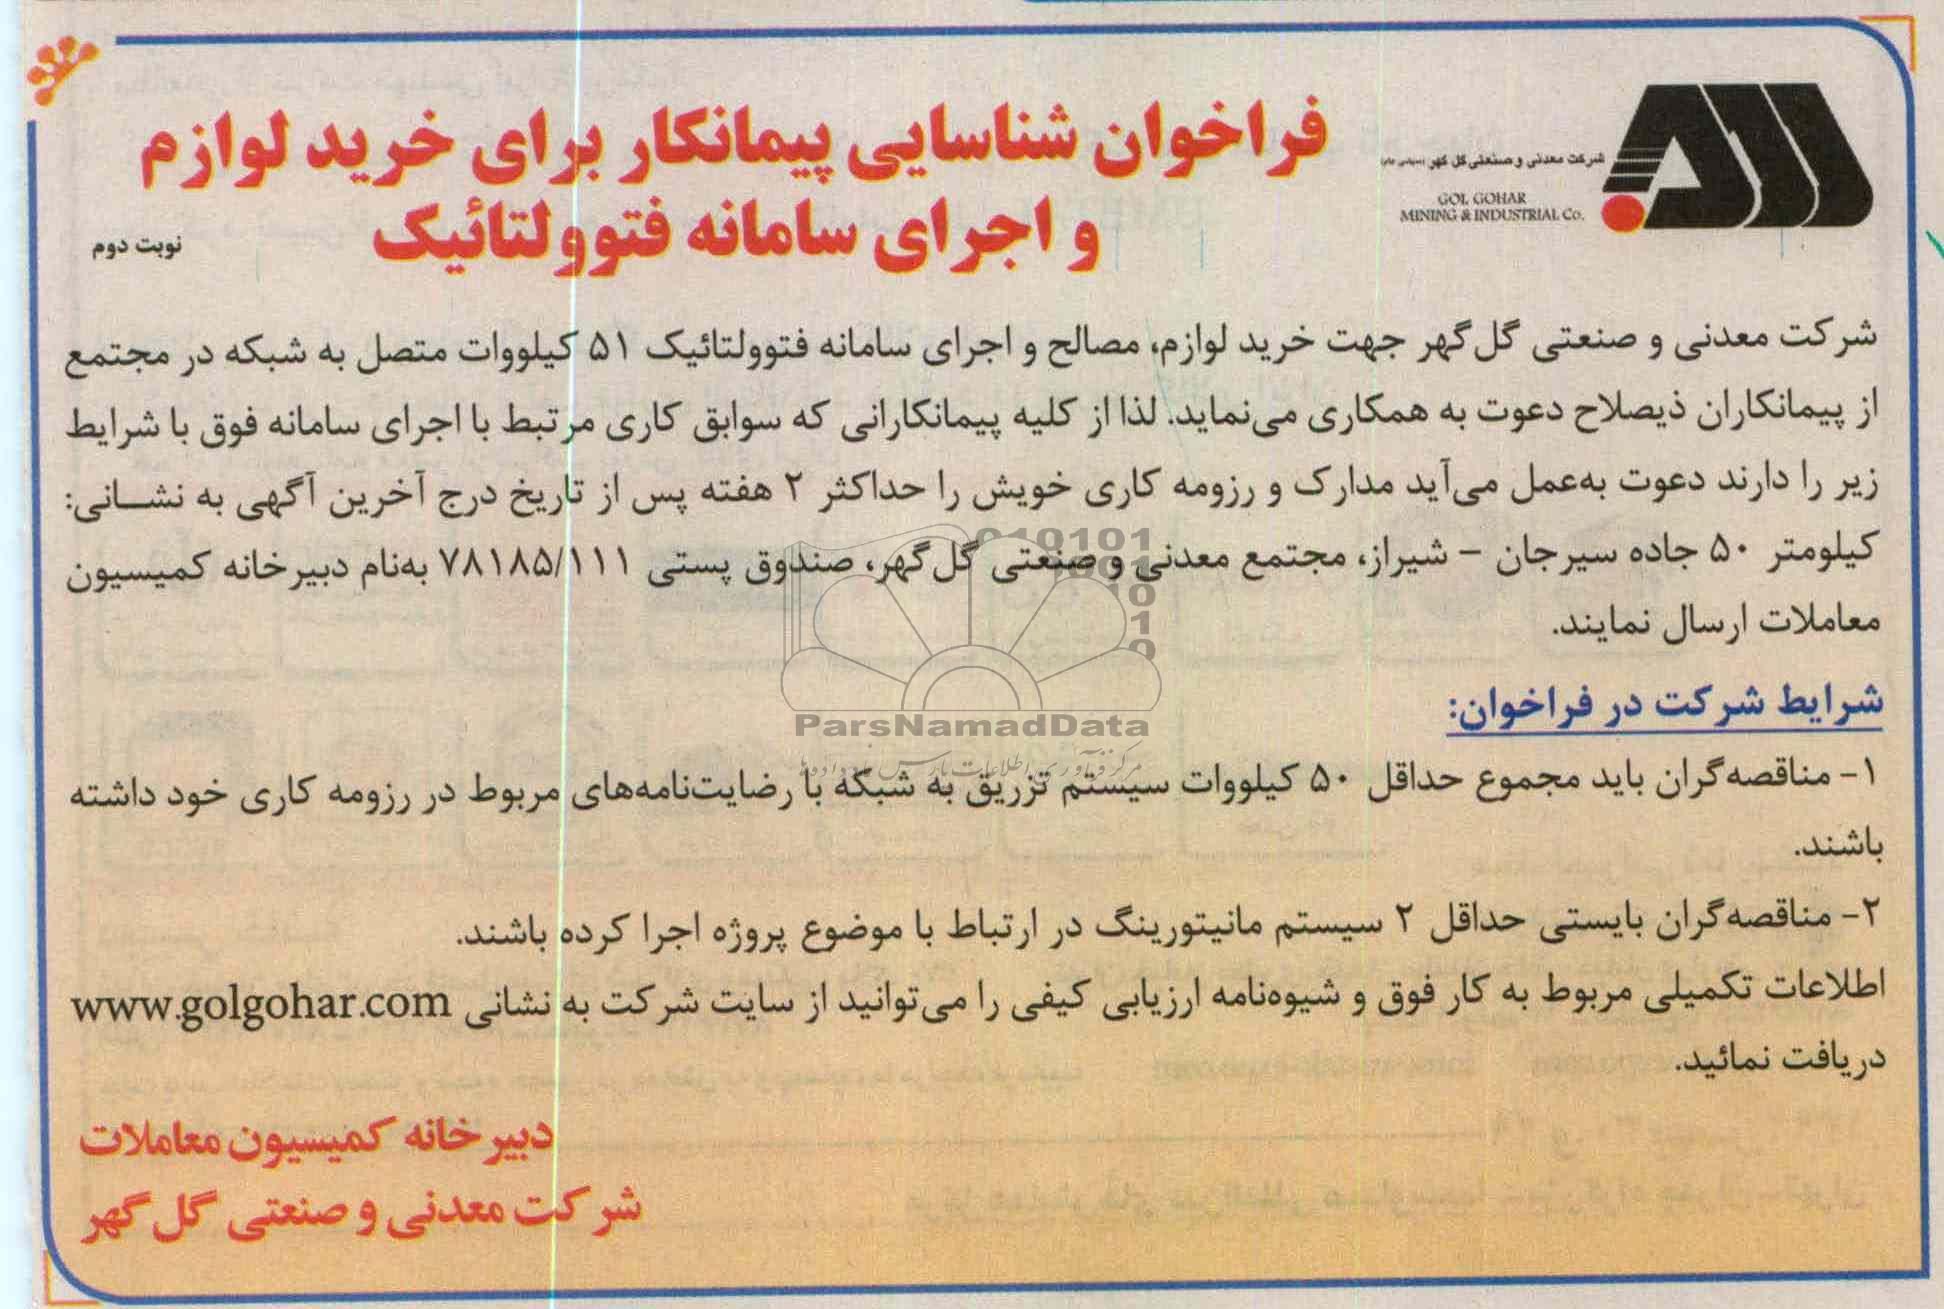 فراخوان شناسایی پیمانکار برای خرید لوازم
و اجرای سامانه فتوولتائیک
نوبت دوم
شرکت معدنی و صنعتی گل گهر (سهامی عام)
GOL GOHAR
MINING & INDUSTRIAL Co.
شرکت معدنی و صنعتی گل‌گهر جهت خرید لوازم، مصالح و اجرای سامانه فتوولتائیک ۵۱ کیلووات متصل به شبکه در مجتمع
از پیمانکاران ذیصلاح دعوت به همکاری می‌نماید. لذا از کلیه پیمانکارانی که سوابق کاری مرتبط با اجرای سامانه فوق با شرایط
زیر را دارند دعوت به‌عمل می‌آید مدارک و رزومه کاری خویش را حداکثر ۲ هفته پس از تاریخ درج آخرین آگهی به نشانی:
کیلومتر ۵۰ جاده سیرجان – شیراز، مجتمع معدنی و صنعتی گل‌گهر، صندوق پستی ۷۸۱۸۵/۱۱۱ به‌نام دبیرخانه کمیسیون
معاملات ارسال نمایند.
شرایط شرکت در فراخوان:
۱- مناقصه‌گران باید مجموع حداقل ۵۰ کیلووات سیستم تزریق به شبکه با رضایت‌نامه‌های مربوط در رزومه کاری خود داشته
باشند.
۲- مناقصه‌گران بایستی حداقل ۲ سیستم مانیتورینگ در ارتباط با موضوع پروژه اجرا کرده باشند.
اطلاعات تکمیلی مربوط به کار فوق و شیوه‌نامه ارزیابی کیفی را می‌توانید از سایت شرکت به نشانی www.golgohar.com
دریافت نمائید.
دبیرخانه کمیسیون معاملات
شرکت معدنی و صنعتی گل گهر
ParsNamadData
مرکز فرآوری اطلاعات پارس نماد داده‌ها